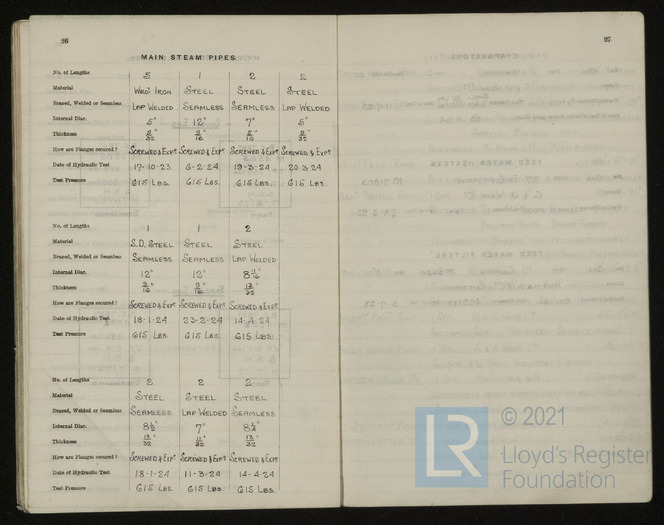 26
MAIN STEAM PIPES.
No. of Lengths 5 1 2 2
Material WROT IRON STEEL STEEL STEEL
Brazed, Welded or Seamless LAP WELDED SEAMLESS SEAMLESS LAP WELDED
Internal Diar. 5" 12" 7" 5"
Thickness 9/32" 9/16"
How are Flanges secured? SCREWED & EXPD SCREWED & EXPD SCREWED & EXPD SCREWED & EXPD
Date of Hydraulic Test 17-10-23 6-2-24 19-3-24 20-3-24
Test Pressure 615 LBS. 615 LBS. 615 LBS. 615 LBS.
No. of Lengths 1 1 2
Material S.D. STEEL STEEL STEEL
Brazed, Welded or Seamless SEAMLESS SEAMLESS LAP WELDED
Internal Diar. 12" 12"
Thickness 9/16" 9/16" 13/32"
How are Flanges secured? SCREWED & EXPD SCREWED & EXPD SCREWED & EXPD
Date of Hydraulic Test 18-1-24 23-2-24 14-4-24
Test Pressure 615 LBS. 615 LBS. 615 LBS.
No. of Lengths 2 2 2
Material STEEL STEEL STEEL
Brazed, Welded or Seamless SEAMLESS LAP WELDED SEAMLESS
Internal Diar. 7"
Thickness 13/32" 11/32" 13/32"
How are Flanges secured? SCREWED & EXPD SCREWED & EXPD SCREWED & EXPD
Date of Hydraulic Test 18-1-24 11-3-24 14-4-24
Test Pressure 615 LBS. 615 LBS. 615 LBS.
27
LR
© 2021
Lloyd's Register
Foundation